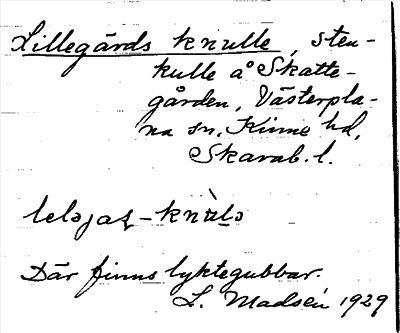 Lillegårds knulle, sten-
kulle å Skatte-
gården, Västerpla-
na sn, Kinne hd,
Skarab. l.
Där finns lyktegubbar.
L. Madsén 1929